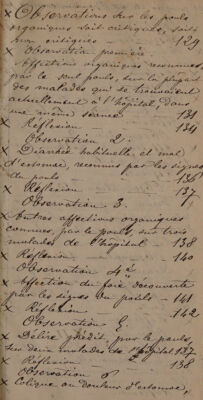 x Observations sur les pouls
organiques soit critiques, soit
non critiques 129
x Observation première
x Affections organiques reconnues
par le seul pouls, sur la plupart
des malades qui se trouvaient
actuellement à l'hôpital, dans
une même séance 131
x Réflexion 134
Observation 2.
x Diarrhée habituelle et mal
d'estomac, reconnus par les signes
du pouls 136
x Réflexion 137
Observation 3.
x Autres affections organiques
connues, par le pouls, sur trois
malades de l'hôpital 138
Réflexion 140
Observation 4e
x Affection du foie découverte
par les signes du pouls 141
x Réflexion 142
Observation 5
x Délire prédit, par le pouls,
sur deux malades de l'hôpital 137
x Réflexion 138
Observation 6
x Colique ou douleur d'estomac,